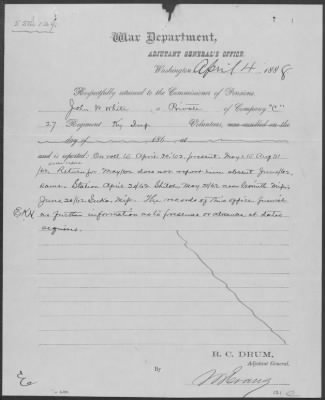 War Department,
ADJUTANT GENERAL'S OFFICE,
Washington, April 4 1888
Respectfully returned to the Commissioner of Pensions.
John W White, a Private of Company "C"
27 Regiment Ky Inf Volunteers, was enrolled on the
day of 186 , at
and is reported: On roll to April 30/62 present. May & to Aug 31
/62 Return for May/62 does not report him absent June/62
same. Station April 30/62 Shiloh May 31/62 near Corinth Miss.
June 30/62 Iuka, Miss. The records of this office furnish
no further information as to presence or absence at dates
required.
R. C. DRUM,
Adjutant General.
By